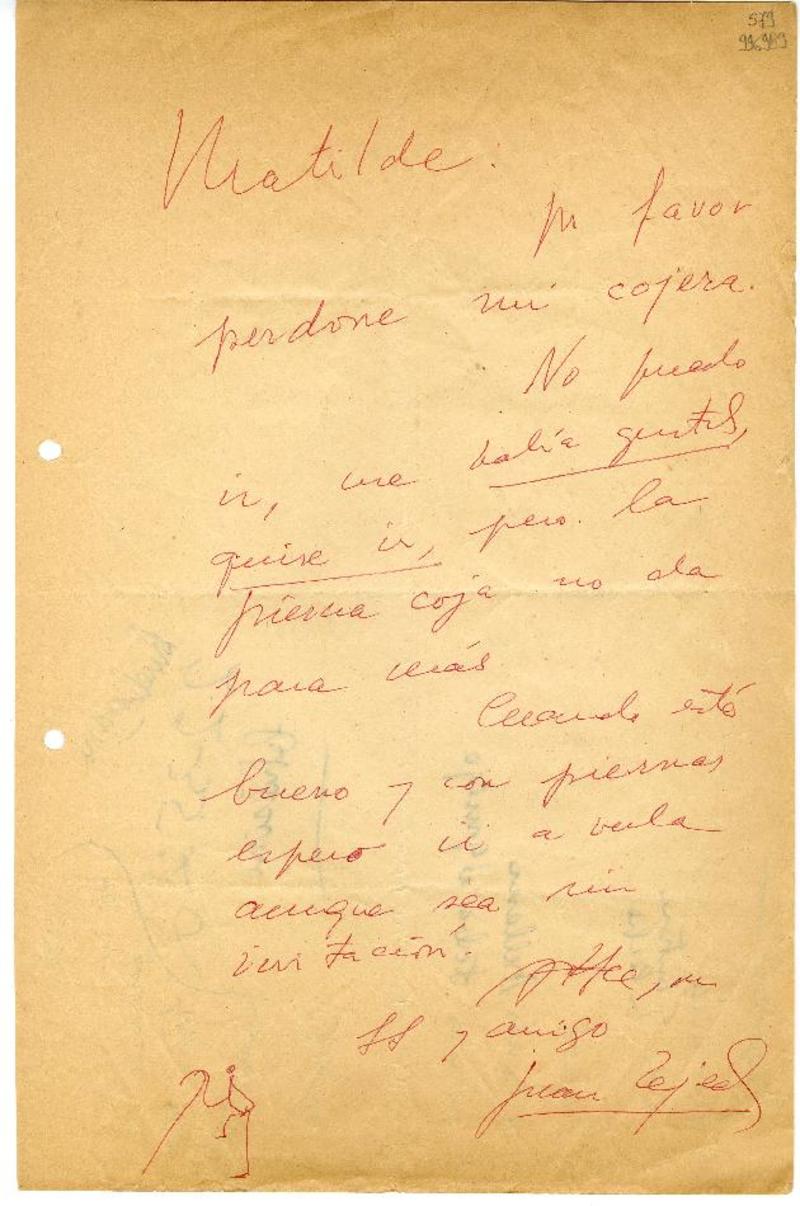 579
996989
Matilde:
por favor
perdone mi cojera.
No puedo
ir, me
quise ir, pero la
pierna coja no da
para más
Cuando esté
bueno y con piernas
espero ir a verla
aunque sea sin
invitación.
Atte, su
SS y amigo
Juan Tejeda